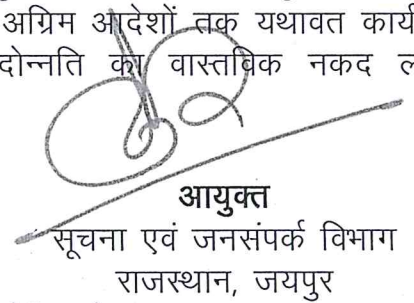 अग्रिम आदेशों तक यथावत
दोन्नति का वास्तविक नकद
आयुक्त
सूचना एवं जनसंपर्क विभाग
राजस्थान, जयपुर